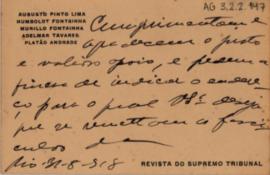 AG 3.2.2.947
AUGUSTO PINTO LIMA
HUMBOLDT FONTAINHA
MURILLO FONTAINHA
ADELMAR TAVARES
PLATÃO ANDRADE
Cumprimentam e
agradecem o grato
e valioso apoio, e pedem a
fineza de indicar o endere
ço para o qual V. S. deseja
que se remettam os fasci
culos
Rio 31-8-918
REVISTA DO SUPREMO TRIBUNAL